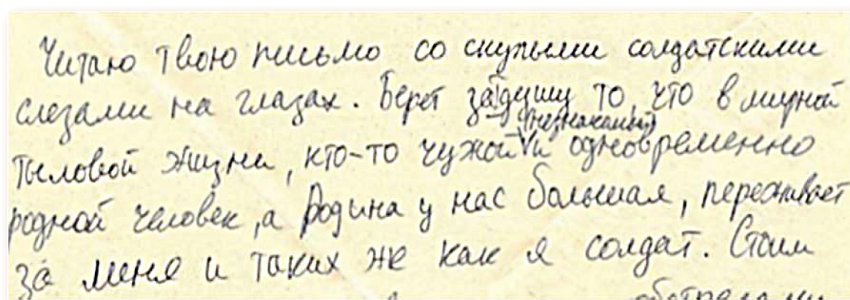 Читаю твою письмо со скупыми солдатскими
слезами на глазах. Берет за душу то, что в мирной
(незнакомый)
тыловой жизни, кто-то чужой и одновременно
родной человек, а Родина у нас большая, переживает
за меня и таких же как я солдат. Стоим
обстрелами